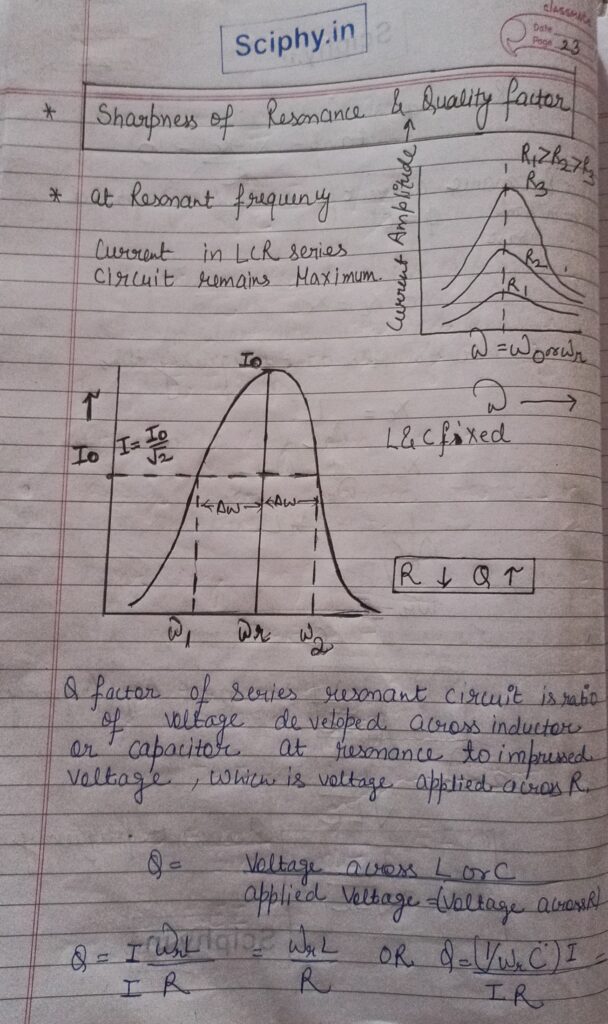 Sciphy.in
classmate
Date
Page 23
* Sharpness of Resonance & Quality factor
* at Resonant frequency
Current in LCR series
Circuit remains Maximum.
Current Amplitude →
R1>R2>R3
R3
R2
R1
ω = ω0 or ωr
ω →
L & C fixed
I0
↑
I0
I = I0/√2
←Δω→ ←Δω→
ω1 ωr ω2
R ↓ Q ↑
Q factor of series resonant circuit is ratio
of voltage developed across inductor
or capacitor at resonance to impressed
voltage, which is voltage applied across R.
Q = Voltage across L or C
applied Voltage = (Voltage across R)
Q = I ωrL / I R = ωrL / R OR Q = (1/ωrC) I / I R =